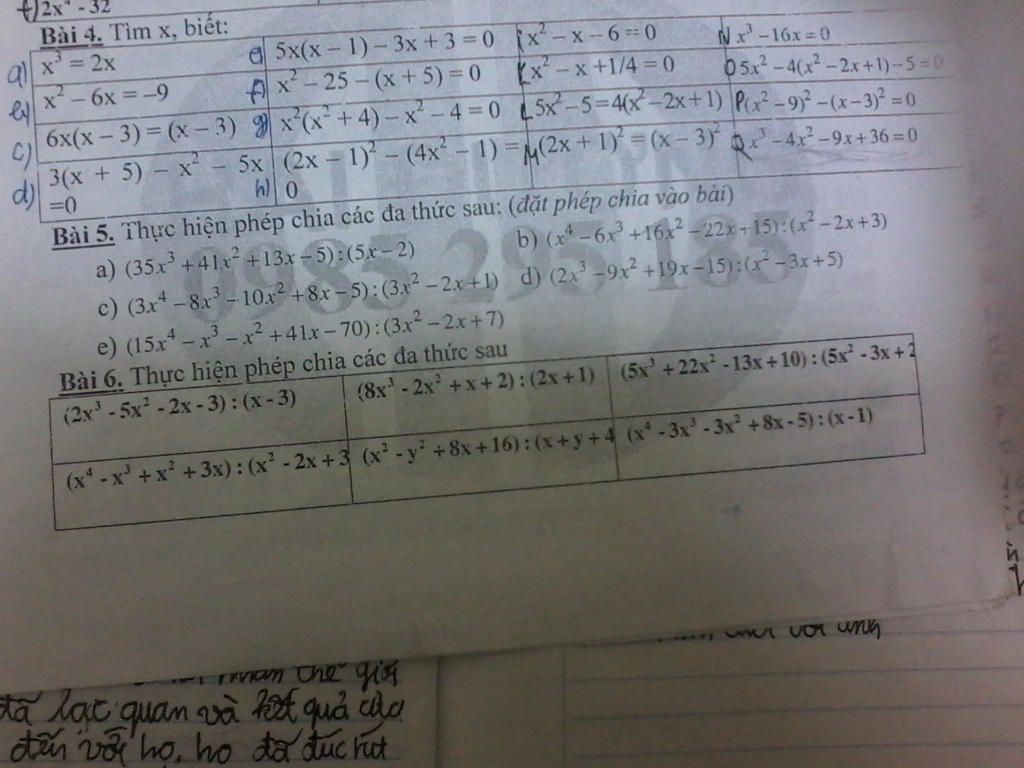 f) 2x⁴ - 32
Bài 4. Tìm x, biết:
a) x³ = 2x
e) 5x(x − 1) − 3x + 3 = 0
x² − x − 6 = 0
N x³ −16x = 0
b) x² − 6x = −9
f) x² − 25 − (x + 5) = 0
K x² − x +1/4 = 0
O 5x² − 4(x² − 2x +1) − 5 = 0
c) 6x(x − 3) = (x − 3)
g) x²(x² + 4) − x² − 4 = 0
L 5x² − 5 = 4(x² − 2x + 1)
P (x² − 9)² − (x − 3)² = 0
d) 3(x + 5) − x² − 5x
=0
h) (2x − 1)² − (4x² − 1) =
0
M (2x + 1)² = (x − 3)²
Q x³ − 4x² − 9x + 36 = 0
Bài 5. Thực hiện phép chia các đa thức sau: (đặt phép chia vào bài)
a) (35x³ + 41x² + 13x − 5) : (5x − 2)
b) (x⁴ − 6x³ + 16x² − 22x + 15) : (x² − 2x + 3)
c) (3x⁴ − 8x³ − 10x² + 8x − 5) : (3x² − 2x + 1)
d) (2x³ − 9x² + 19x − 15) : (x² − 3x + 5)
e) (15x⁴ − x³ − x² + 41x − 70) : (3x² − 2x + 7)
0985 295 185
Bài 6. Thực hiện phép chia các đa thức sau
(2x³ - 5x² - 2x - 3) : (x - 3)
(8x³ - 2x² + x + 2) : (2x + 1)
(5x³ + 22x² - 13x + 10) : (5x² - 3x + 2
(x⁴ - x³ + x² + 3x) : (x² - 2x + 3
(x² - y² + 8x + 16) : (x + y + 4
(x⁴ - 3x³ - 3x² + 8x - 5) : (x - 1)
thế giới
đã lạc quan và kết quả của
đến với họ, họ đã đúc kết
với ứng